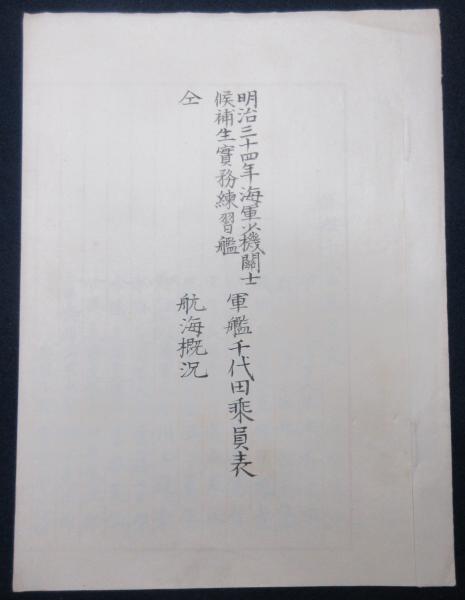 明治三十四年海軍少機關士
候補生實務練習艦
軍艦千代田乘員表
仝
航海概況